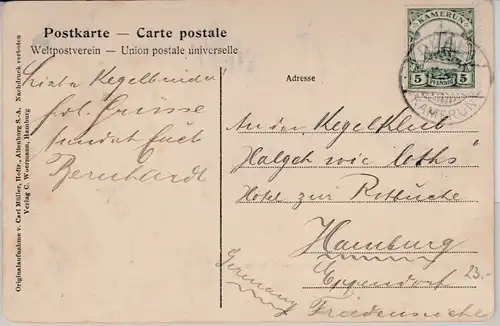 Postkarte — Carte postale
Weltpostverein — Union postale universelle
Liebe Kegelbrüder
hrl. Grüsse
sendet Euch
Bernhardt
Originalaufnahme v. Carl Müller, Hofbr., Altenburg S.-A. Nachdruck verboten
Verlag C. Woermann, Hamburg
Adresse
KAMERUN
5 PFENNIG 5
KAMERUN
An den Kegelklub
Halgoh wie loths
Hotel zur Rotbuche
Hamburg
Eppendorf
Friedenseiche
Germany
23.-